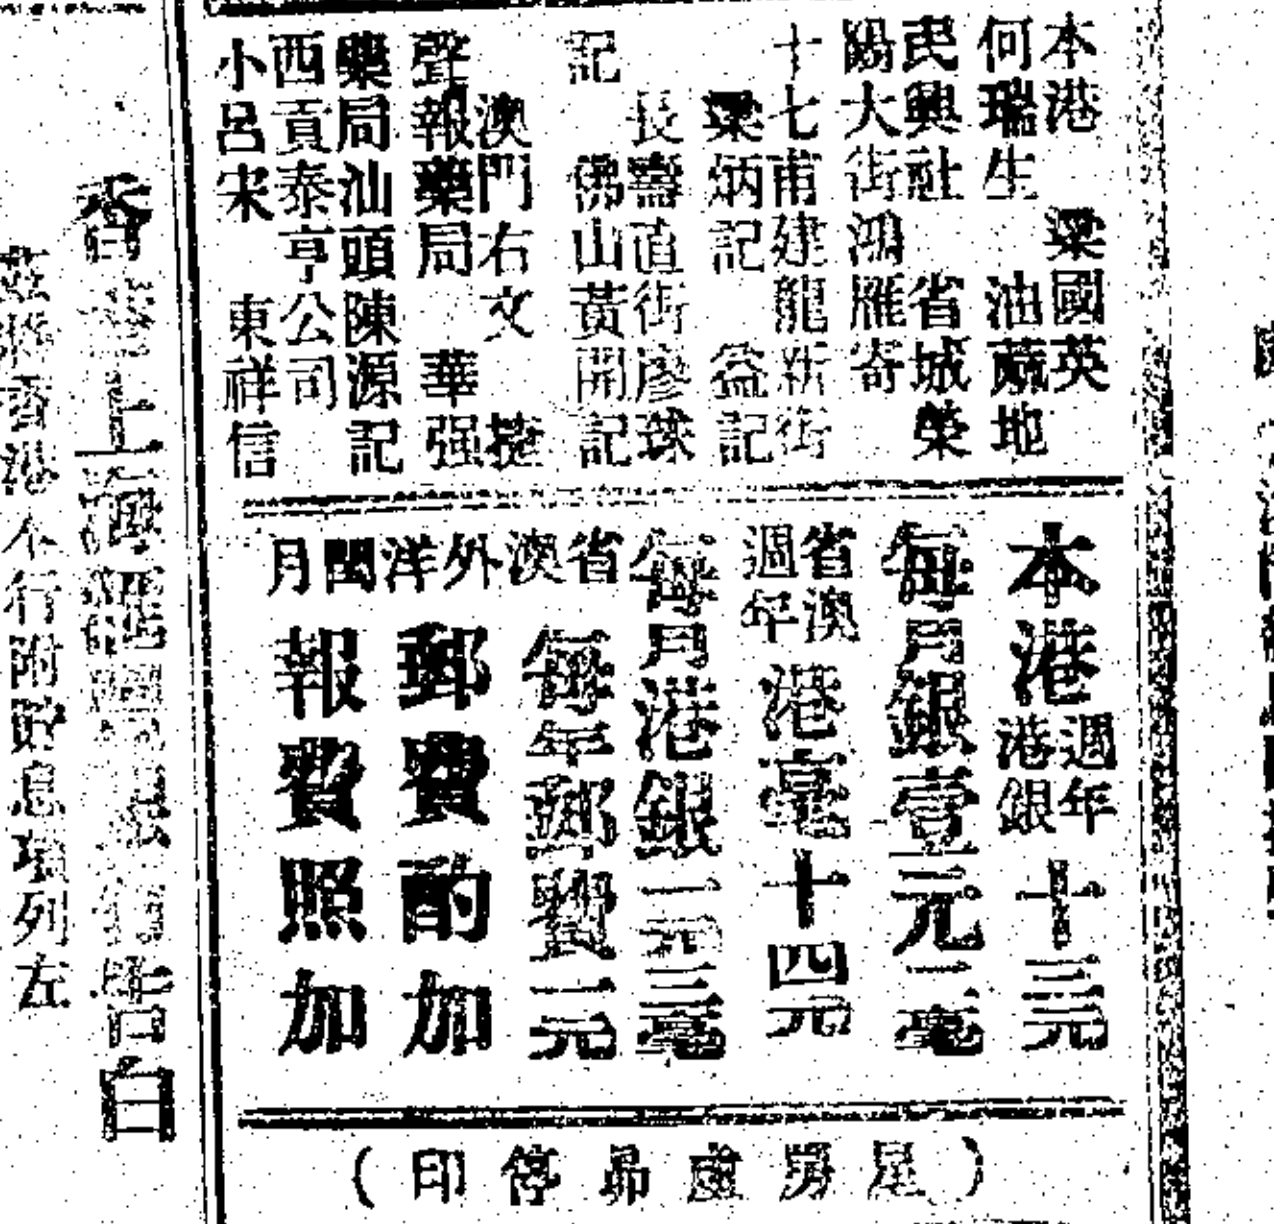 本港　梁國英
何瑞生　油蔴地
民興社　省城榮
陽大街鴻雁寄
十七甫建龍新街
梁炳記　益記
長壽直街廖球
記　佛山黃開記
澳門右文　捷
聲報藥局　華强
藥局汕頭陳源記
西貢泰亨公司
小呂宋　東祥信
本港週年港銀十三元
每月銀壹元二毫
省澳週年港毫十四元
每月港銀一元三毫
省澳每年郵費一元
外洋郵費酌加
閏月報費照加
(星房虛昴停印)
香上海
白
香港本行附貯息項列左